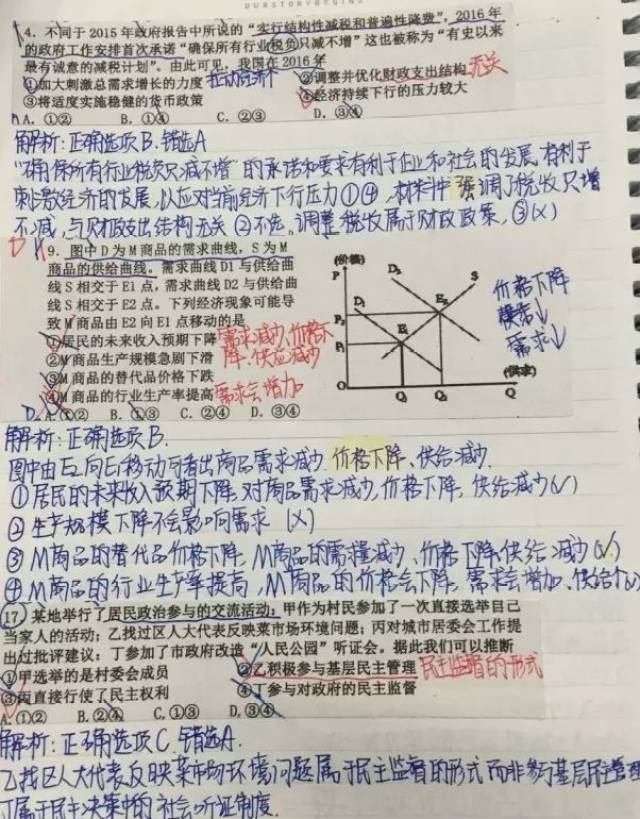 4. 不同于 2015 年政府报告中所说的“实行结构性减税和普遍性降费”，2016 年
的政府工作安排首次承诺“确保所有行业税负只减不增”这也被称为“有史以来
最有诚意的减税计划”。由此可见，我国在 2016 年
①加大刺激总需求增长的力度 拉动经济 ②调整并优化财政支出结构 无关
③将适度实施稳健的货币政策 ④经济持续下行的压力较大
A. ①② B. ①④ C. ②③ D. ③④
解析: 正确选项 B. 错选A
“确保所有行业税负只减不增”的承诺和要求有利于企业和社会的发展, 有利于
刺激经济的发展, 以应对当前经济下行压力①④, 材料中强调了税收只增
不减, 与财政支出结构无关 ②不选。调整税收属于财政政策, ③(×)
9. 图中 D 为 M 商品的需求曲线，S 为 M
商品的供给曲线。需求曲线 D1 与供给曲
线 S 相交于 E1 点，需求曲线 D2 与供给曲
线 S 相交于 E2 点。下列经济现象可能导
致 M 商品由 E2 向 E1 点移动的是
①居民的未来收入预期下降 需求减少, 价格下
②M 商品生产规模急剧下滑 降, 供应减少
③M 商品的替代品价格下跌
④M 商品的行业生产率提高 需求会增加
D. A. ①② B. ①③ C. ②④ D. ③④
(价格)
P
D₂
S
D₁
P₂
E₂
P₁
E₁
O
Q₁
Q₂
Q
(供求)
价格下降
供给↓
需求↓
解析: 正确选项 B.
图中由E₂向E₁移动可看出商品需求减少. 价格下降、供给减少.
①居民的未来收入预期下降, 对商品需求减少, 价格下降, 供给减少(√)
②生产规模下降不会影响需求 (×)
③M商品的替代品价格下降, M商品的需求量减少、价格下降, 供给减少(√)
④M商品的行业生产率提高, M商品的价格会下降, 需求会增加、供给个(×)
17. 某地举行了居民政治参与的交流活动：甲作为村民参加了一次直接选举自己
当家人的活动；乙找过区人大代表反映菜市场环境问题；丙对城市居委会工作提
出过批评建议；丁参加了市政府改造“人民公园”听证会。据此我们可以推断
①甲选举的是村委会成员 ②乙积极参与基层民主管理 民主监督的形式
③丙直接行使了民主权利 ④丁参与对政府的民主监督
A. ①② B. ②④ C. ①③ D. ③④
解析: 正确选项 C. 错选A.
乙找区人大代表反映菜市场环境问题属于民主监督的形式而非参与基层民主管理
丁属于民主决策中的社会听证制度.